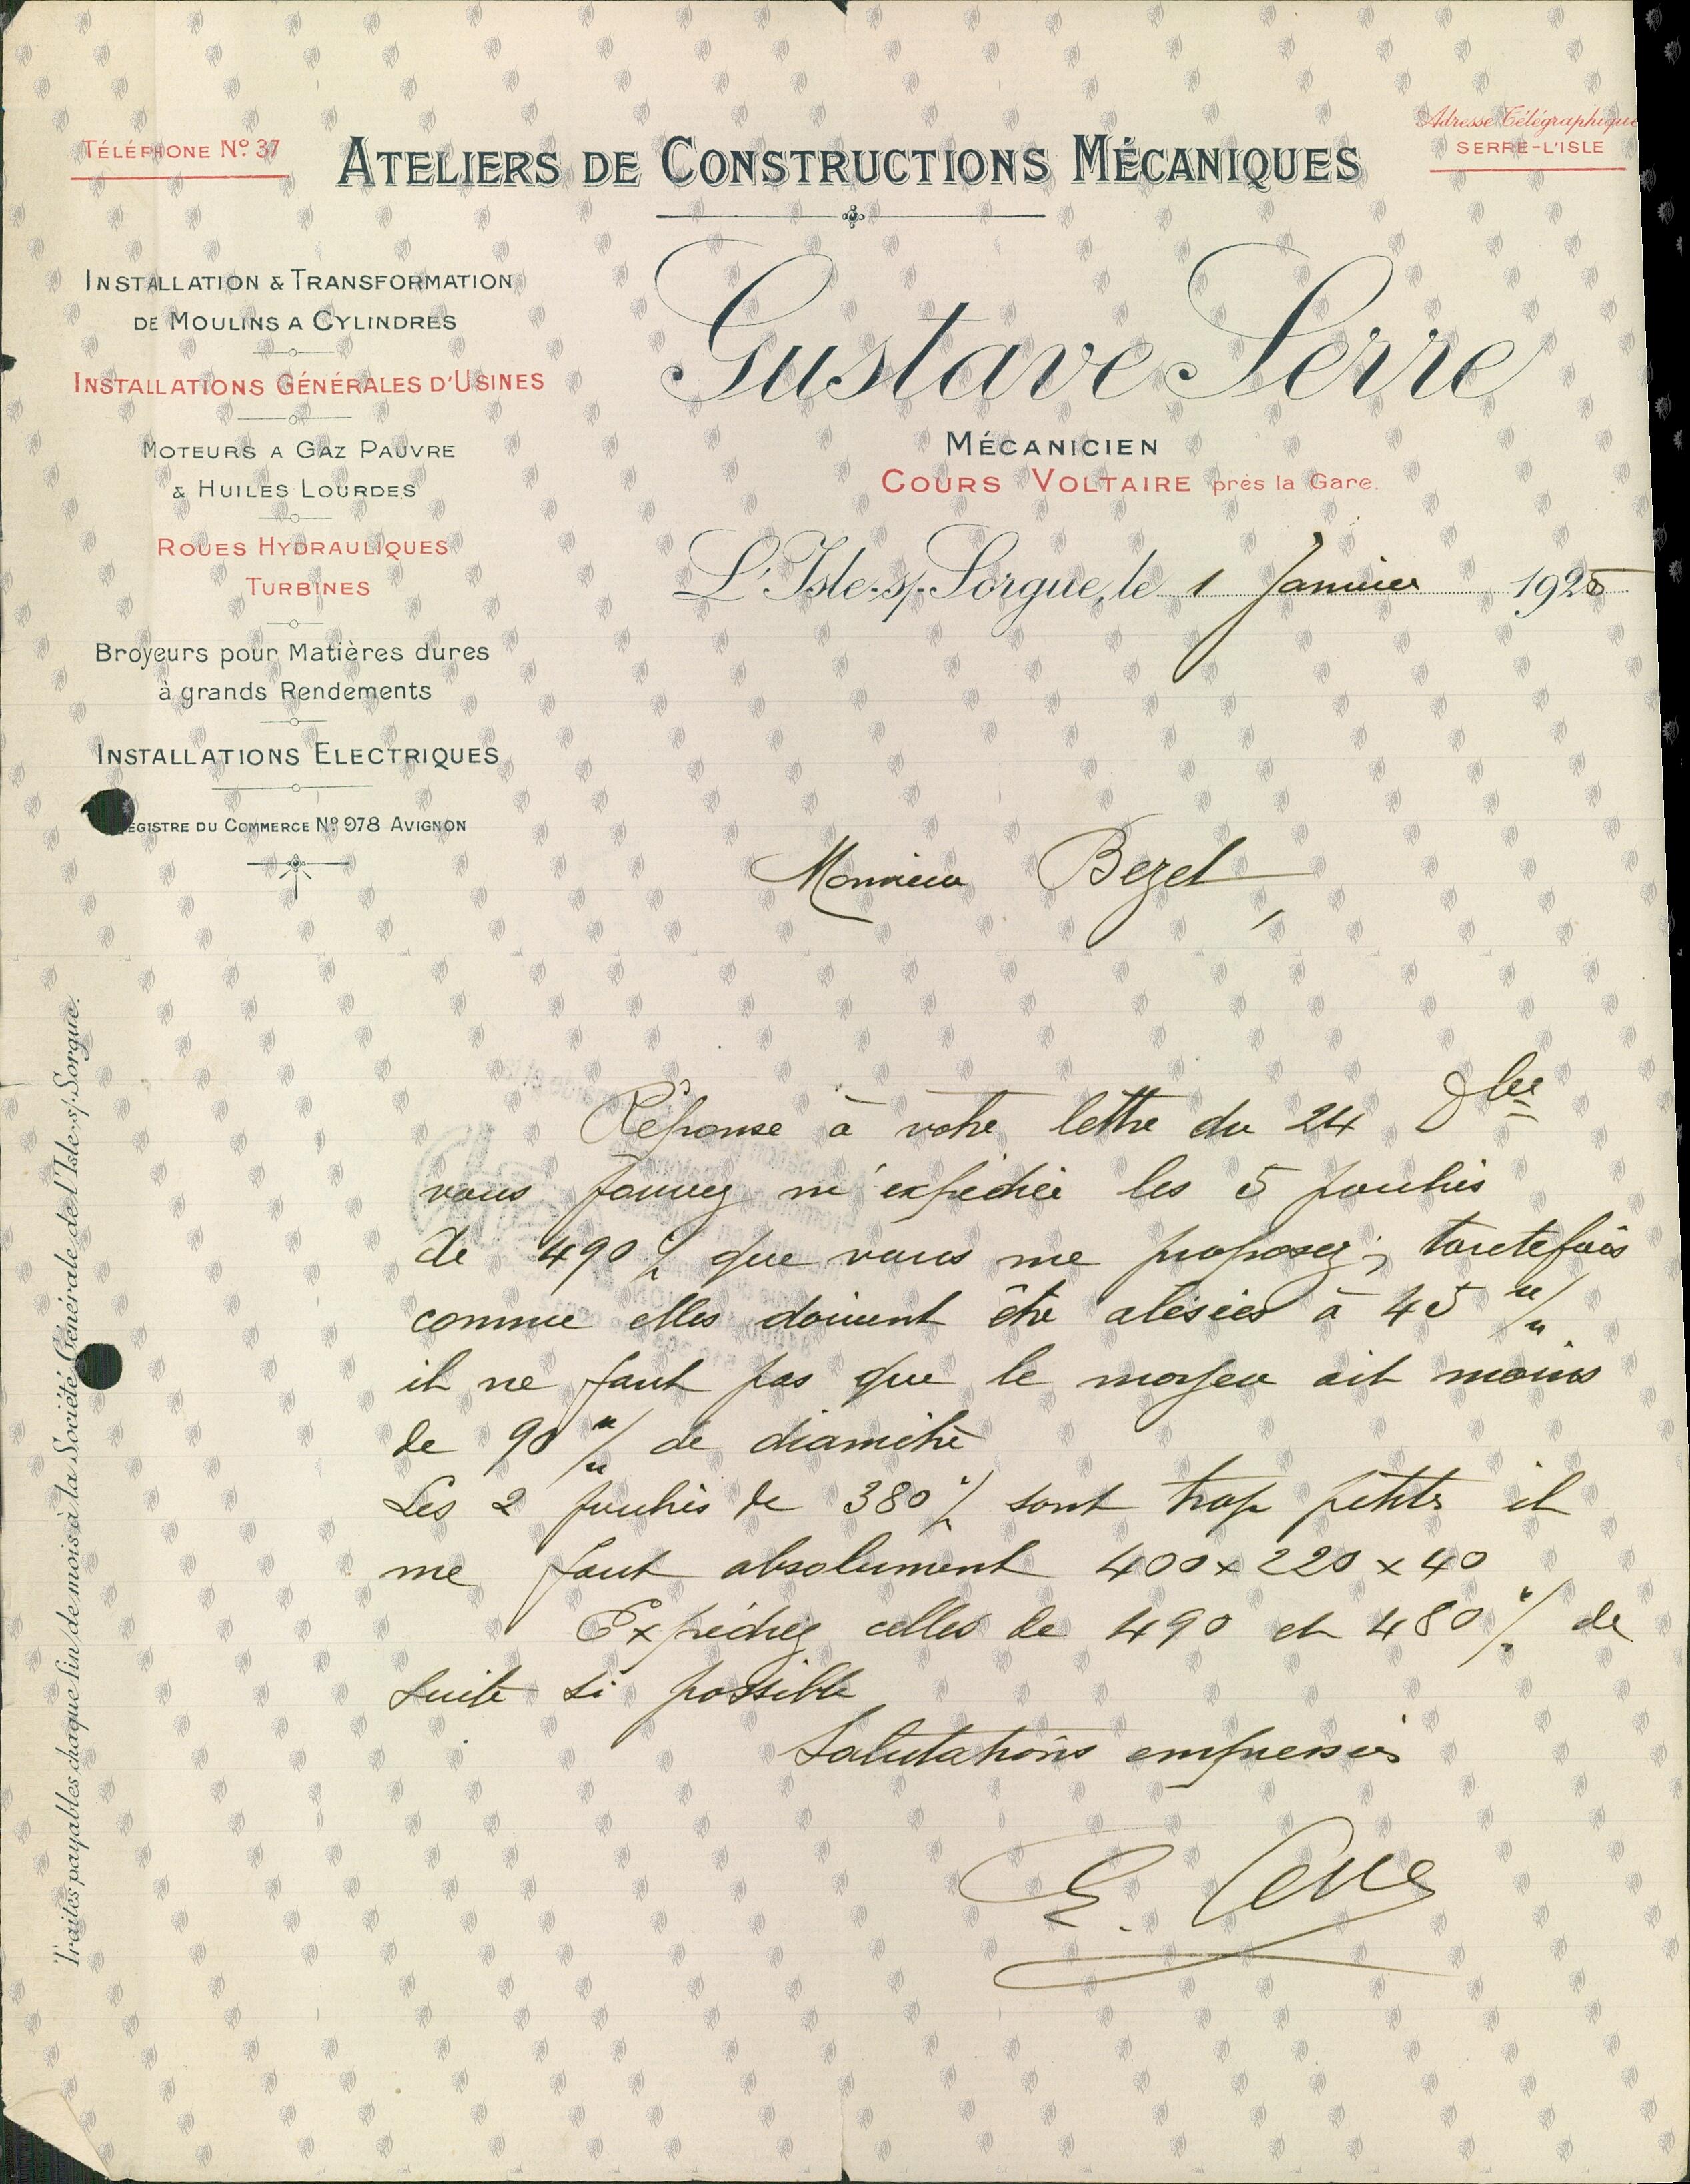 TÉLÉPHONE Nº 37
ATELIERS DE CONSTRUCTIONS MÉCANIQUES
Adresse Télégraphique
SERRE-L'ISLE
INSTALLATION & TRANSFORMATION
DE MOULINS A CYLINDRES
INSTALLATIONS GÉNÉRALES D'USINES
MOTEURS A GAZ PAUVRE
& HUILES LOURDES
ROUES HYDRAULIQUES
TURBINES
Broyeurs pour Matières dures
à grands Rendements
INSTALLATIONS ELECTRIQUES
REGISTRE DU COMMERCE Nº 978 AVIGNON
Gustave Serre
MÉCANICIEN
COURS VOLTAIRE près la Gare.
L'Isle-s/-Sorgue, le 1 Janvier 1925
Monsieur Bezet,
Réponse à votre lettre du 24 Dbre
vous pouvez m'expédier les 5 poulies
de 490 m/m que vous me proposez; toutefois
comme elles doivent être alésées à 45 m/m
il ne faut pas que le moyeu ait moins
de 90 m/m de diamètre
Les 2 poulies de 380 m/m sont trop petites il
me faut absolument 400 x 220 x 40
Expédiez celles de 490 et 480 m/m de
suite si possible
Salutations empressées
Serre
Traites payables chaque fin de mois à la Société Générale de l'Isle-s/-Sorgue.